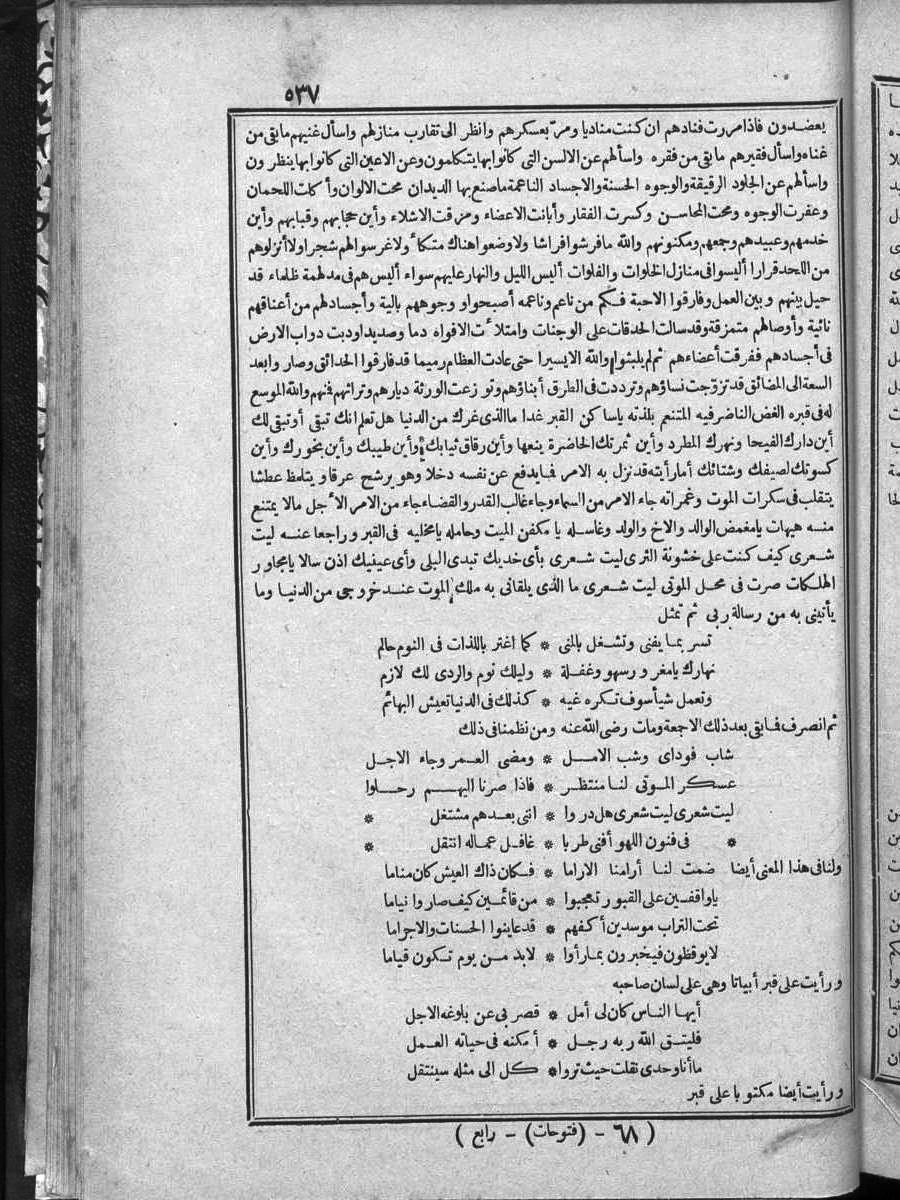 ٥٣٧
يعضدون فاذا مررت فنادهم ان كنت مناديا ومرّ بعسكرهم وانظر الى تقارب منازلهم واسأل غنيهم ما بقى من
غناه واسأل فقيرهم ما بقى من فقره واسألهم عن الالسن التى كانوا بها يتكلمون وعن الاعين التى كانوا بها ينظرون
واسألهم عن الجلود الرقيقة والوجوه الحسنة والاجساد الناعمة ما صنع بها الديدان محت الالوان وأكلت اللحمان
وعفرت الوجوه ومحت المحاسن وكسرت الفقار وأبانت الاعضاء ومزقت الاشلاء وأين حجابهم وقبابهم وأين
خدمهم وعبيدهم وجمعهم ومكنونهم والله ما فرشوا فراشا ولا وضعوا هناك متكأ ولا غرسوا لهم شجرا ولا أنزلوهم
من اللحد قرارا أليسوا فى منازل الخلوات والفلوات أليس الليل والنهار عليهم سواء أليس هم فى مدلهمة ظلماء قد
حيل بينهم وبين العمل وفارقوا الاحبة فكم من ناعم وناعمه أصبحوا ووجوههم بالية وأجسادهم من أعناقهم
نائية وأوصالهم متمزقة وقد سالت الحدقات على الوجنات وامتلأت الافواه دما وصديدا ودبت دواب الارض
فى أجسادهم ففرقت أعضاءهم ثم لم يلبثوا والله الا يسيرا حتى عادت العظام رميما قد فارقوا الحدائق وصاروا بعد
السعة الى المضائق قد تزوّجت نساؤهم وترددت فى الطرق أبناؤهم وتوزعت الورثة ديارهم وتراثهم فمنهم والله الموسع
له فى قبره الغض الناضر فيه المتنعم بلذته يا ساكن القبر غدا ما الذى غرك من الدنيا هل تعلم انك تبقى أو تبقى لك
أين دارك الفيحا ونهرك المطرد وأين ثمرتك الحاضرة ينعها وأين رقاق ثيابك وأين طيبك وأين بخورك وأين
كسوتك لصيفك وشتائك أما رأيته قد نزل به الامر فما يدفع عن نفسه دخلا وهو يرشح عرقا ويتلمظ عطشا
يتقلب فى سكرات الموت وغمراته جاء الامر من السماء وجاء غالب القدر والقضاء جاء من الامر الأجل مالا يمتنع
منه هيهات يا مغمض الوالد والاخ والولد وغاسله يا مكفن الميت وحامله يا مخليه فى القبر وراجعا عنه ليت
شعرى كيف كنت على خشونة الثرى ليت شعرى بأى خديك تبدى البلى وأى عينيك اذن سالا يا مجاور
الهلكات صرت فى محل الموتى ليت شعرى ما الذى يلقانى به ملك الموت عند خروجى من الدنيا وما
يأتينى به من رسالة ربى ثم تمثل
تسر بما يفنى وتشغل بالمنى * كما اغتر باللذات فى النوم حالم
نهارك يا مغرور سهو وغفلة * وليلك نوم والردى لك لازم
وتعمل شيأ سوف تكره غيه * كذلك فى الدنيا تعيش البهائم
ثم انصرف فما بقى بعد ذلك الا جمعة ومات رضى الله عنه ومن نظمنا فى ذلك
شاب فوداى وشب الامل * ومضى العمر وجاء الاجل
عسكر الموتى لنا منتظر * فاذا صرنا اليهم رحلوا
ليت شعرى ليت شعرى هل دروا * اننى بعدهم مشتغل *
* فى فنون اللهو أفنى طربا * غافل عما له انتقل *
ولنا فى هذا المعنى أيضا ضمت لنا أرامنا الاراما * فكان ذاك العيش كان مناما
يا واقفين على القبور تعجبوا * من قائمين كيف صاروا نياما
تحت التراب موسدين أكفهم * قد عاينوا الحسنات والاجراما
لا يوقظون فيخبرون بما رأوا * لا بد من يوم تكون قياما
ورأيت على قبر أبياتا وهى على لسان صاحبه
أيها الناس كان لى أمل * قصر بى عن بلوغه الاجل
فليتق الله ربه رجل * أمكنه فى حياته العمل
ما أنا وحدى نقلت حيث تروا * كل الى مثله سينتقل
ورأيت أيضا مكتوبا على قبر
( ٦٨ - (فتوحات) - رابع )